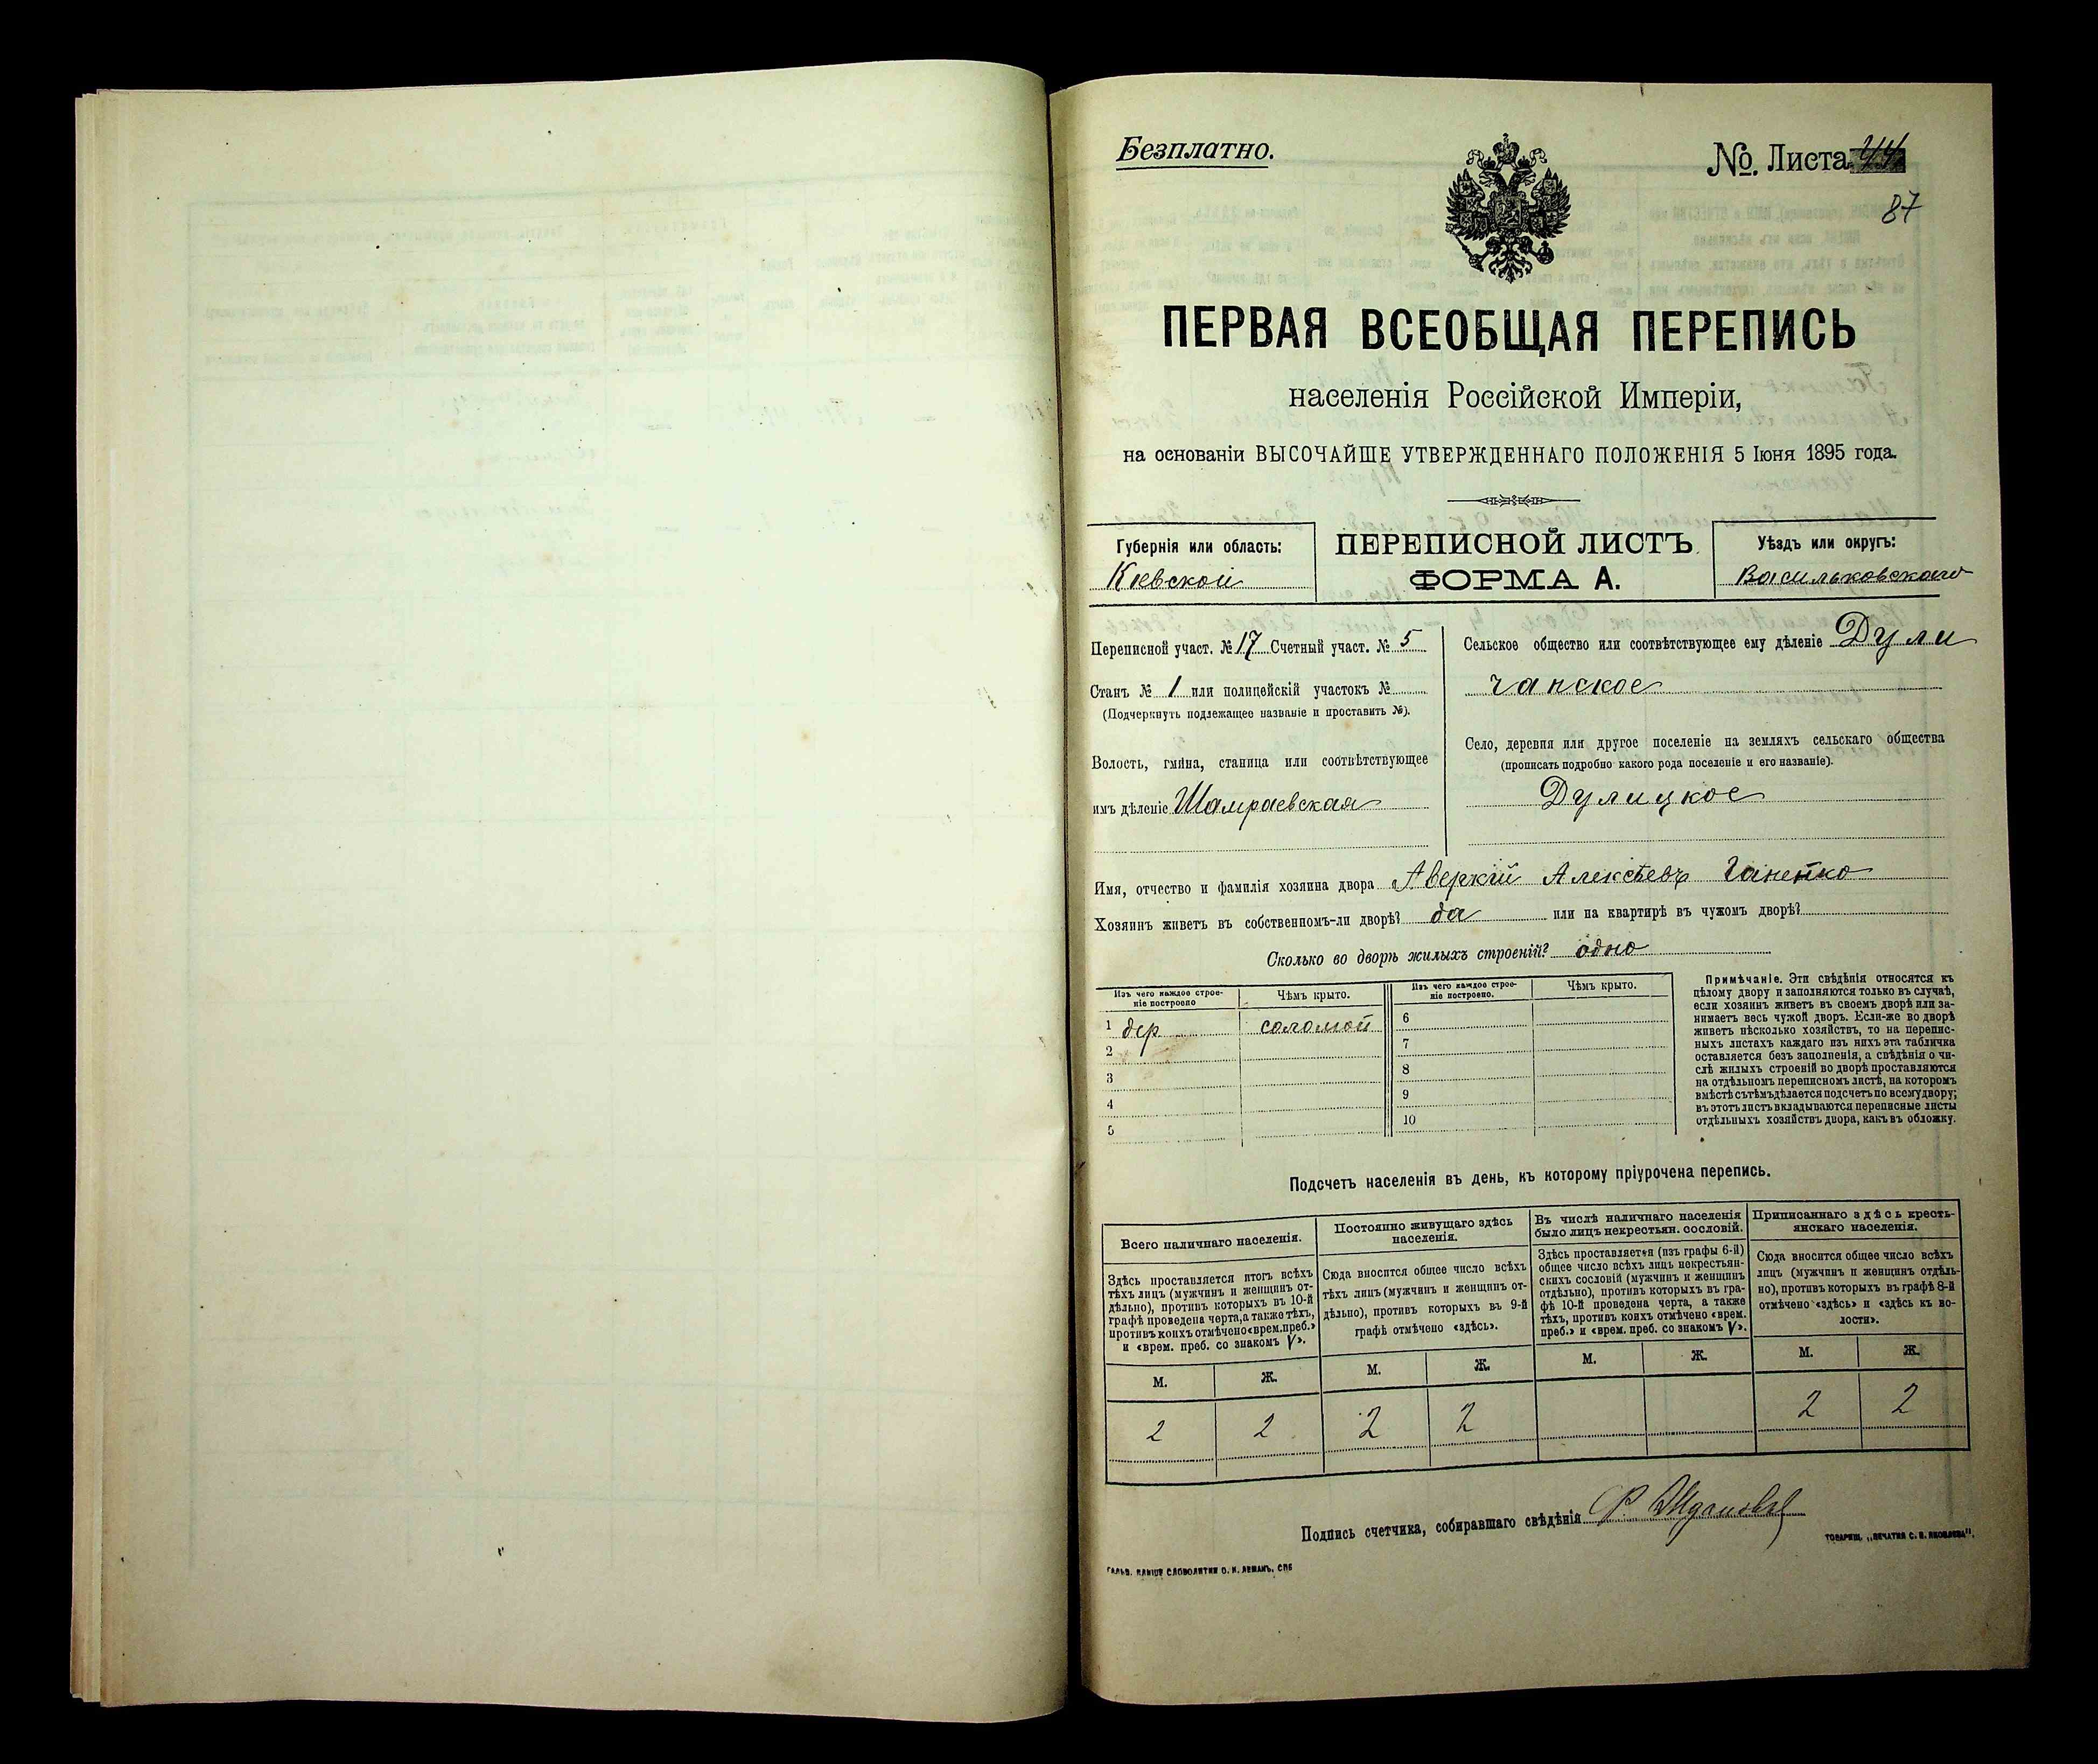 Безплатно.
№ Листа 44
87
ПЕРВАЯ ВСЕОБЩАЯ ПЕРЕПИСЬ
населенія Россійской Имперіи,
на основаніи ВЫСОЧАЙШЕ УТВЕРЖДЕННАГО ПОЛОЖЕНІЯ 5 Іюня 1895 года.
Губернія или область:
Кіевской
ПЕРЕПИСНОЙ ЛИСТЪ
ФОРМА А.
Уѣздъ или округъ:
Васильковскаго
Переписной участ. № 17 Счетный участ. № 5
Станъ № 1 или полицейскій участокъ №
(Подчеркнуть подлежащее названіе и проставить №).
Волость, гмина, станица или соотвѣтствующее
имъ дѣленіе Шамраевская
Сельское общество или соотвѣтствующее ему дѣленіе Дули
чапское
Село, деревня или другое поселеніе на земляхъ сельскаго общества
(прописать подробно какого рода поселеніе и его названіе).
Дулицкое
Имя, отчество и фамилія хозяина двора Аверкій Алексѣевъ Ганенко
Хозяинъ живетъ въ собственномъ-ли дворѣ? да или на квартирѣ въ чужомъ дворѣ?
Сколько во дворѣ жилыхъ строеній? одно
Изъ чего каждое строе-
ніе построено
Чѣмъ крыто.
Изъ чего каждое строе-
ніе построено.
Чѣмъ крыто.
1 дер соломой
2
3
4
5
6
7
8
9
10
Примѣчаніе. Эти свѣдѣнія относятся къ
цѣлому двору и заполняются только въ случаѣ,
если хозяинъ живетъ въ своемъ дворѣ или за-
нимаетъ весь чужой дворъ. Если-же во дворѣ
живетъ нѣсколько хозяйствъ, то на перепис-
ныхъ листахъ каждаго изъ нихъ эта табличка
оставляется безъ заполненія, а свѣдѣнія о чи-
слѣ жилыхъ строеній во дворѣ проставляются
на отдѣльномъ переписномъ листѣ, на которомъ
вмѣстѣ съ тѣмъ дѣлается подсчетъ по всему двору;
въ этотъ листъ вкладываются переписные листы
отдѣльныхъ хозяйствъ двора, какъ въ обложку.
Подсчетъ населенія въ день, къ которому пріурочена перепись.
Всего наличнаго населенія.
Здѣсь проставляется итогъ всѣхъ
тѣхъ лицъ (мужчинъ и женщинъ от-
дѣльно), противъ которыхъ въ 10-й
графѣ проведена черта, а также тѣхъ,
противъ коихъ отмѣчено «врем. преб.»
и «врем. преб. со знакомъ V».
Постоянно живущаго здѣсь
населенія.
Сюда вносится общее число всѣхъ
тѣхъ лицъ (мужчинъ и женщинъ от-
дѣльно), противъ которыхъ въ 9-й
графѣ отмѣчено «здѣсь».
Въ числѣ наличнаго населенія
было лицъ некрестьян. сословій.
Здѣсь проставляется (изъ графы 6-й)
общее число всѣхъ лицъ некрестьян-
скихъ сословій (мужчинъ и женщинъ
отдѣльно), противъ которыхъ въ гра-
фѣ 10-й проведена черта, а также
тѣхъ, противъ коихъ отмѣчено «врем.
преб.» и «врем. преб. со знакомъ V».
Приписаннаго здѣсь кресть-
янскаго населенія.
Сюда вносится общее число всѣхъ
лицъ (мужчинъ и женщинъ отдѣль-
но), противъ которыхъ въ графѣ 8-й
отмѣчено «здѣсь» и «здѣсь къ во-
лости».
М. Ж. М. Ж. М. Ж. М. Ж.
2 2 2 2 2 2
Подпись счетчика, собиравшаго свѣдѣнія
ТОВАРИЩ. „ПЕЧАТНЯ С. П. ЯКОВЛЕВА".
ГАЛЬВ. КЛИШЕ СЛОВОЛИТНИ О. И. ЛЕМАНЪ, СПБ